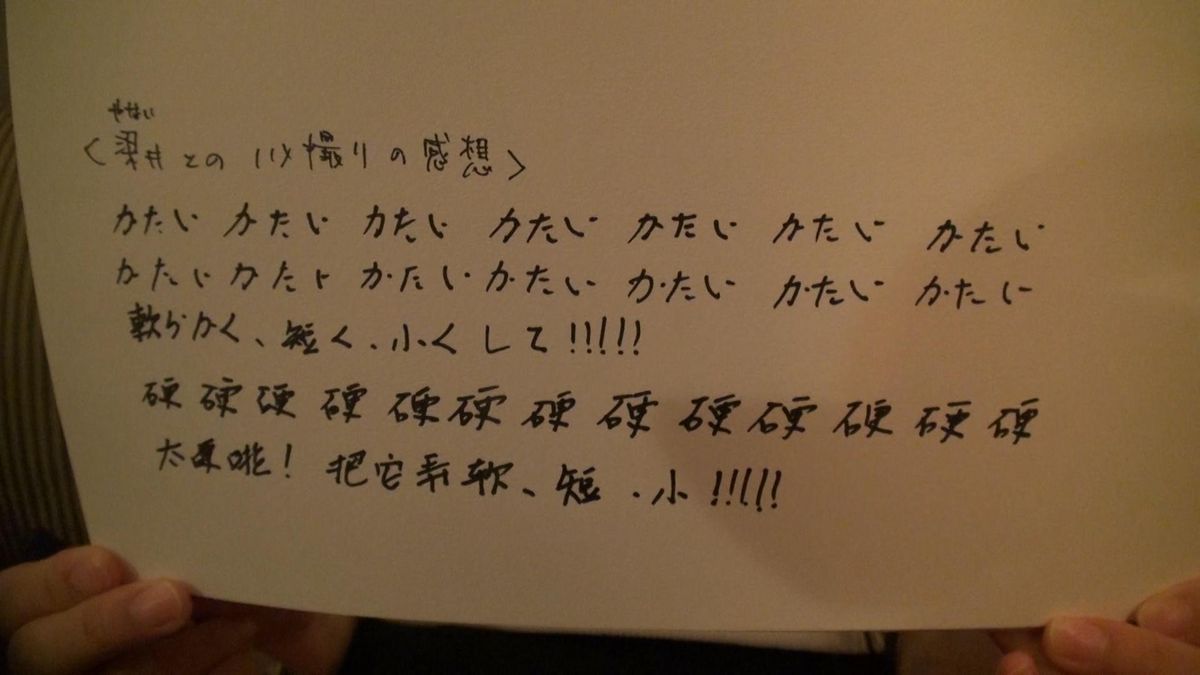 やない
〈梁井とのハメ撮りの感想〉
かたい かたい かたい かたい かたい かたい かたい
かたい かたい かたい かたい かたい かたい かたい
軟らかく、短く、小くして!!!!!
硬 硬 硬 硬 硬 硬 硬 硬 硬 硬 硬 硬 硬
太 ! 把它 軟、短、小!!!!!